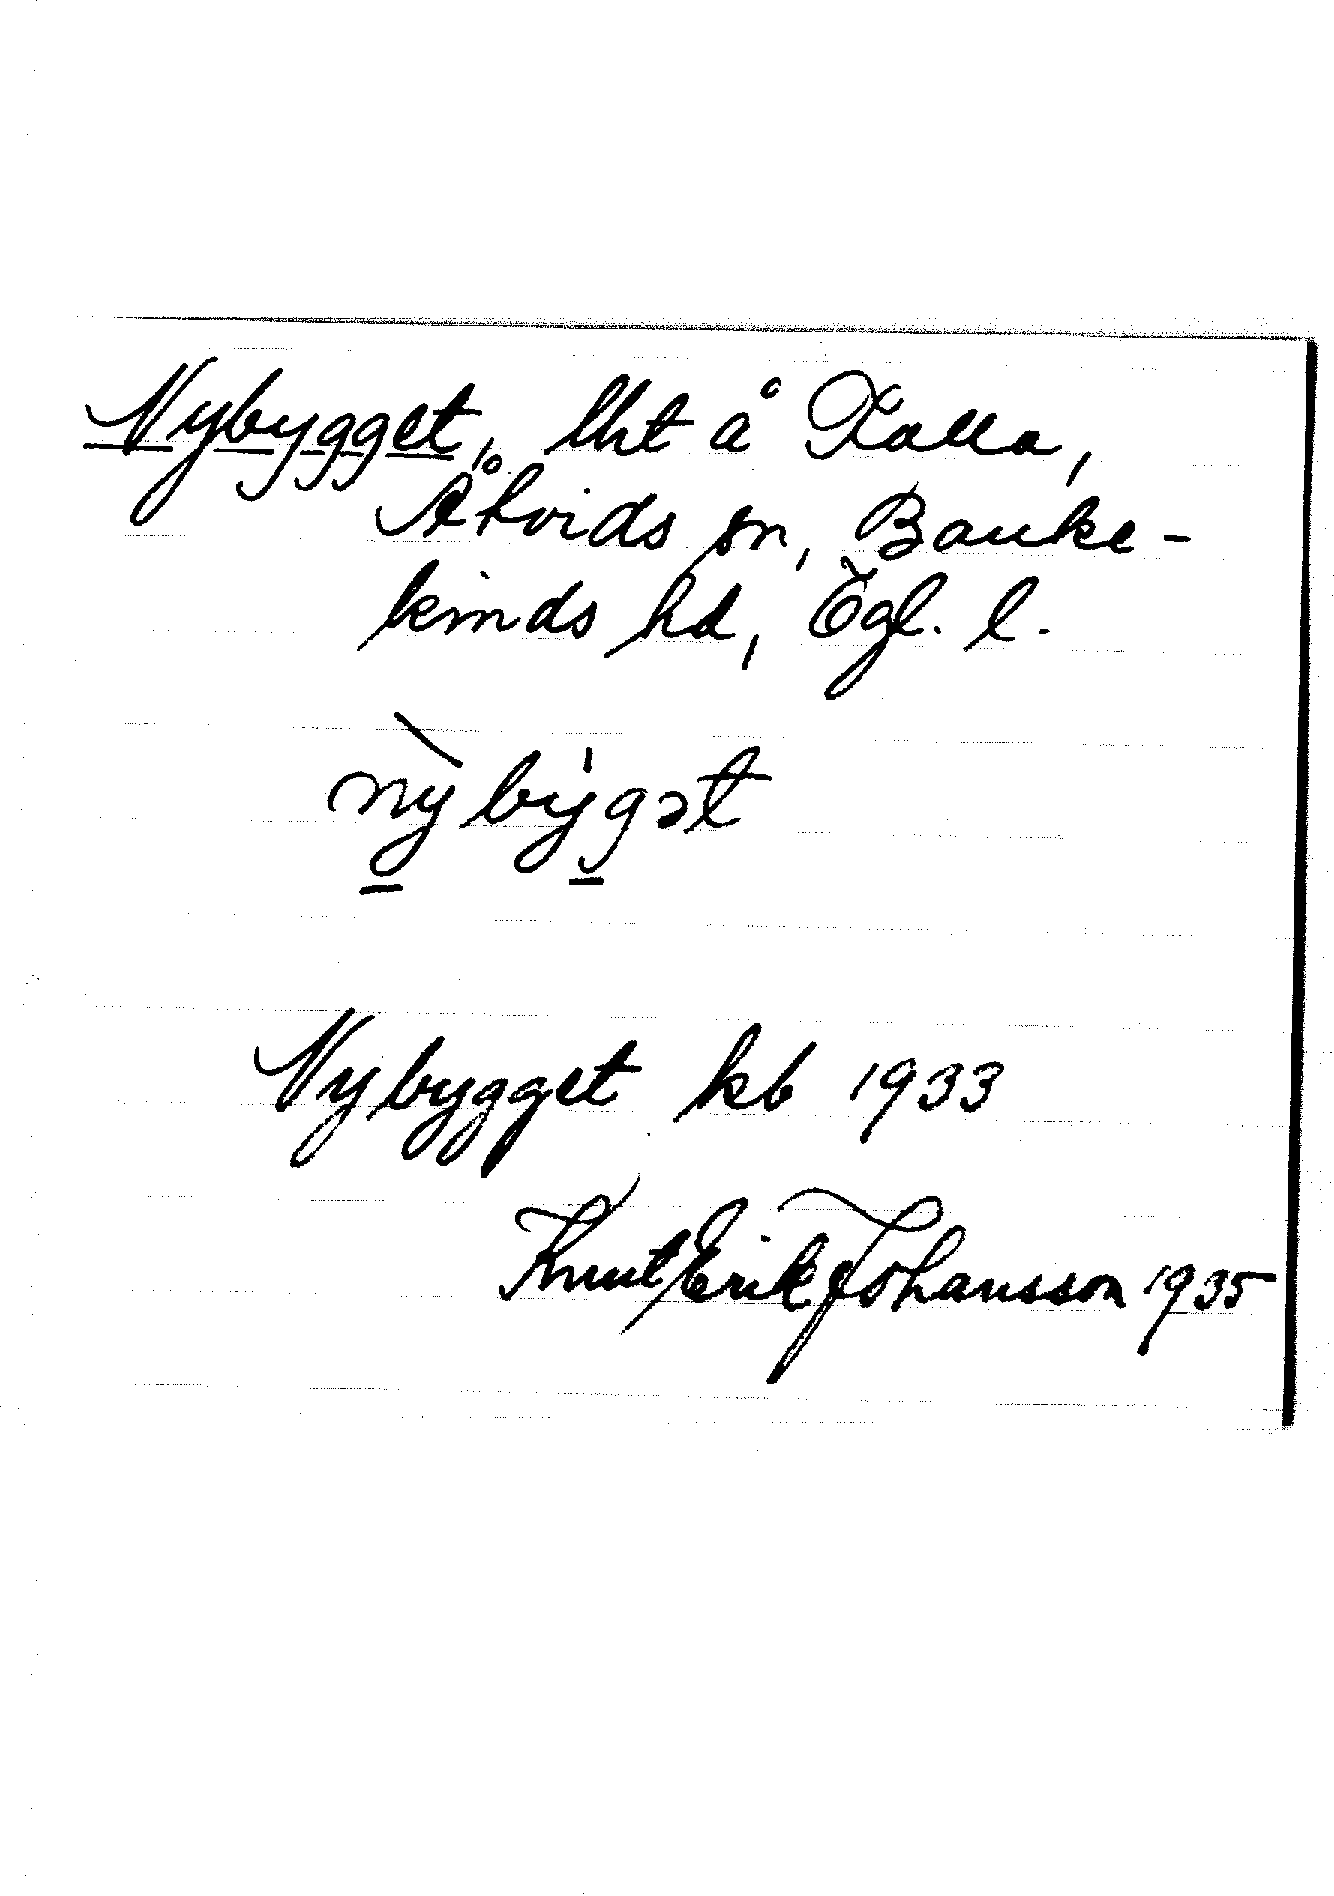 Nybygget, lht å Kalla,
Åtvids sn, Banke-
kinds hd, Ögl. l.
nỳbýgət
Nybygget kb 1933
Knut Erik Johansson 1935